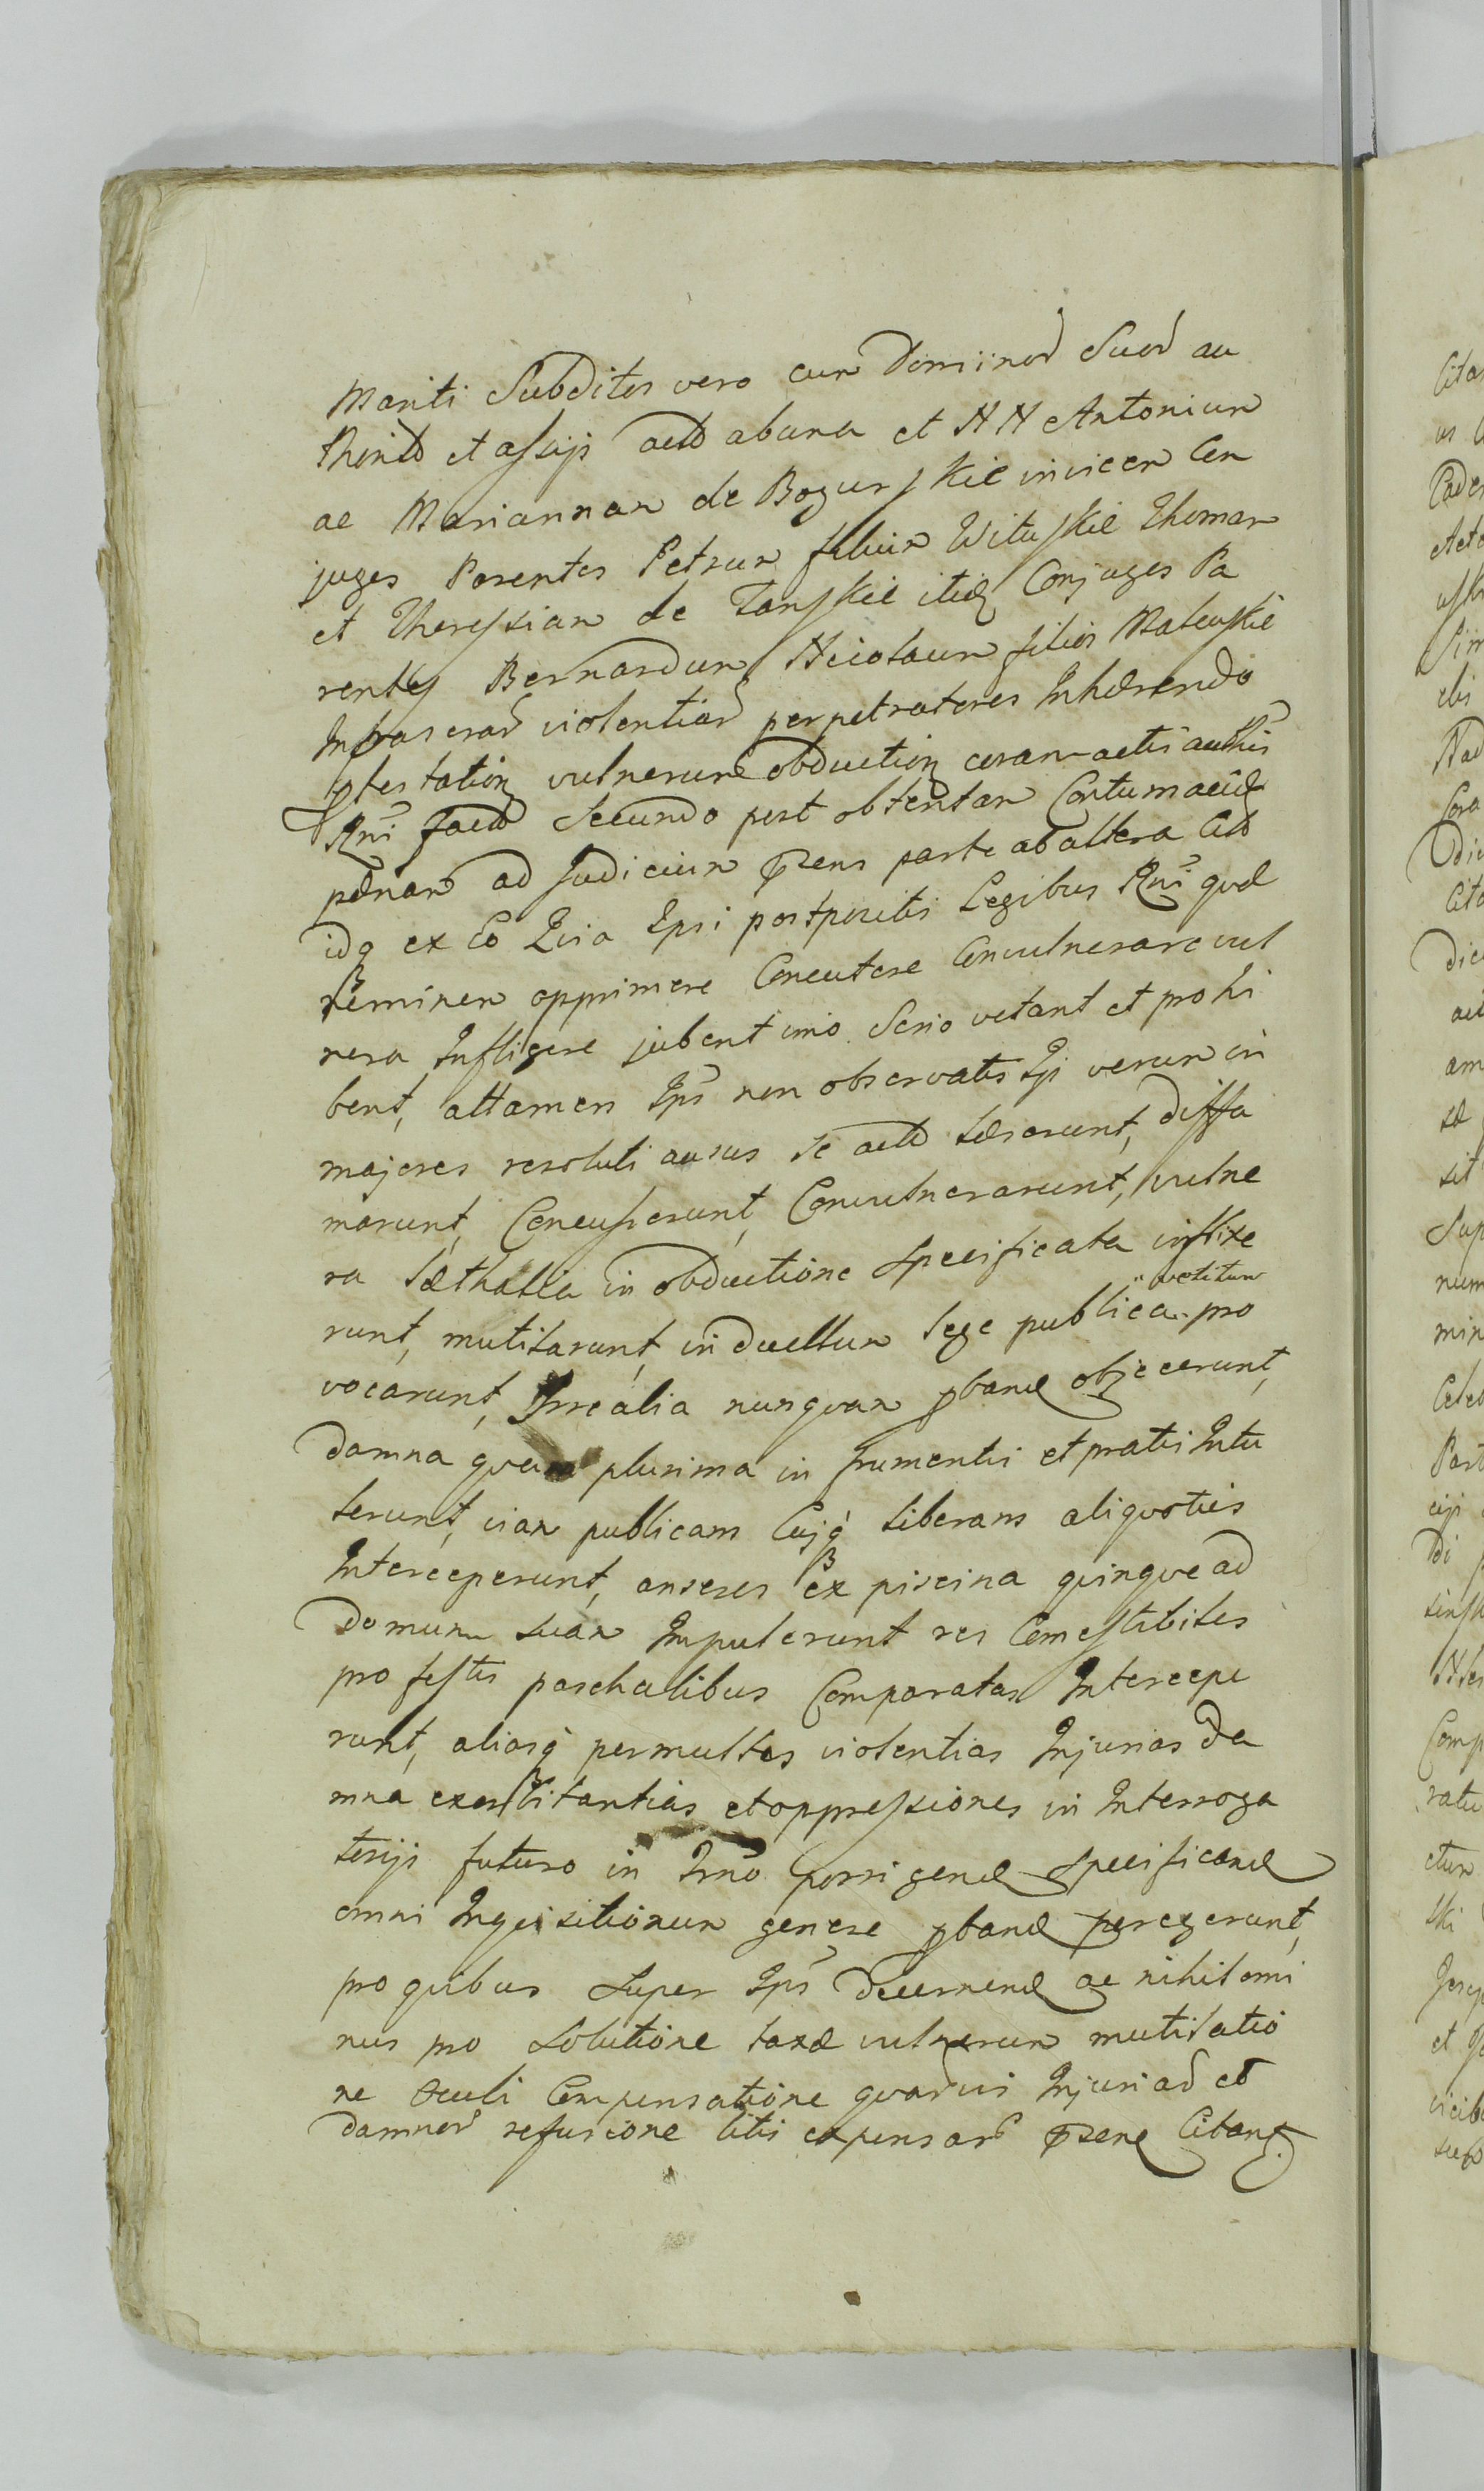 Mariti Subditos vero cum Dominor Suor au
thorit et assijs actō ab una et NN Antonium
ac Mariannam de Boguskie invicem Con
juges Parentes Petrum filium Wituskie Thomam
et Theressiam de Zanskie itid Conjuges Pa
rentes Bernardum Nicolaum filios Makuskie
Infrascrar violentiar perpetratores Inhærendo
ptestationj vulnerumē obductionj coram actis authis
Rni factō Secundo post obtentam Contumaciæ
pœnam ad Judicium præns parte ab altera Citō
idq ex Eo Quia Ipsi postpositis Legibus Rni quæ
neminem opprimere Concutere Convulnerare vul
nera Infligere jubent imo Serio vetant et prohi
bent, attamen Ips non observatis Ipsi verum in
majores resoluti ausus se actō læserunt, diffa
marunt, Concusserunt, Convulnerarunt, vulne
ra læthalia in obductione specificata inflixe
runt, mutilarunt, in duellum lege publica vetitum pro
vocarunt, Irrealia nunquam pband objecerunt,
damna quam plurima in frumentis et pratis Intu
lerunt, viam publicam Cujq liberam aliquoties
Interceperunt, anseres ex piscina quinque ad
domum suam Impulerunt res Comestibiles
pro festis paschalibus Comparatas Intercepe
runt, aliasq permultas violentias Injurias da
mna exorbitantias et oppressiones in Interroga
torijs futuro in Trno porrigend specificand
omni Inquisitionum genere pband peregerunt,
pro quibus super Ips decernend ac nihilomi
nus pro solutione taxæ vulnerum mutilatio
ne oculi Compensatione quarvis Injuriar et
damnor refusione litis expensar præne Citant.